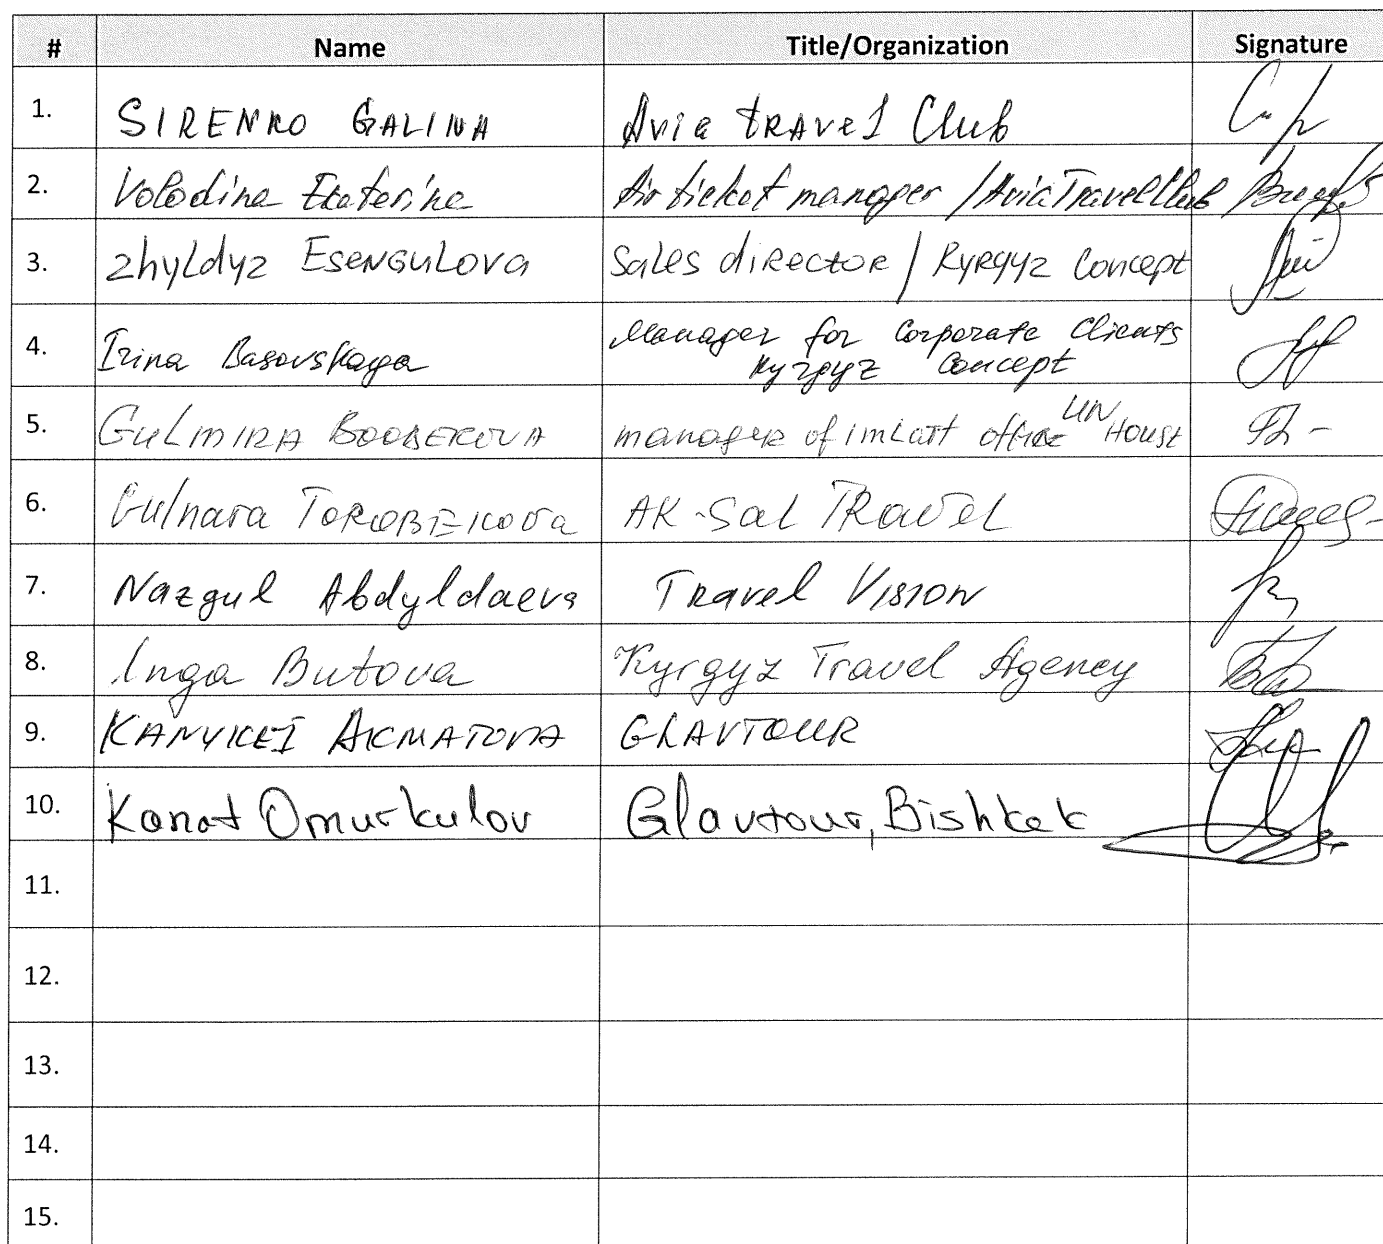 # Name Title/Organization Signature
1. SIRENKO GALINA Avia travel Club
2. Volodina Ekaterina Air ticket manager / Avia Travel Club
3. Zhyldyz Esengulova Sales director / Kyrgyz Concept
4. Irina Basovskaya Manager for Corporate Clients
Kyrgyz Concept
5. GULMIRA manager of office UN House
6. Gulnara TOROBEKOVA AK-Sai TRAVEL
7. Nazgul Abdyldaeva Travel Vision
8. Inga Butova Kyrgyz Travel Agency
9. KANYKEI AKMATOVA GLAVTOUR
10. Kanat Omurkulov Glavtour, Bishkek
11.
12.
13.
14.
15.